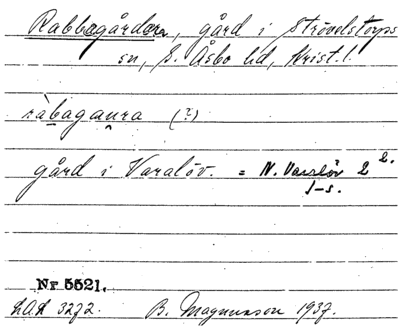 Rabbegårdarna, gård i Strövelstorps
sn, S. Åsbo hd, Krist. l.
ràbagaṇra (?)
gård i Varalöv. = N. Varalöv 2 2.
1-s.
Nr 5521.
LAL 3272. B. Magnusson 1937.